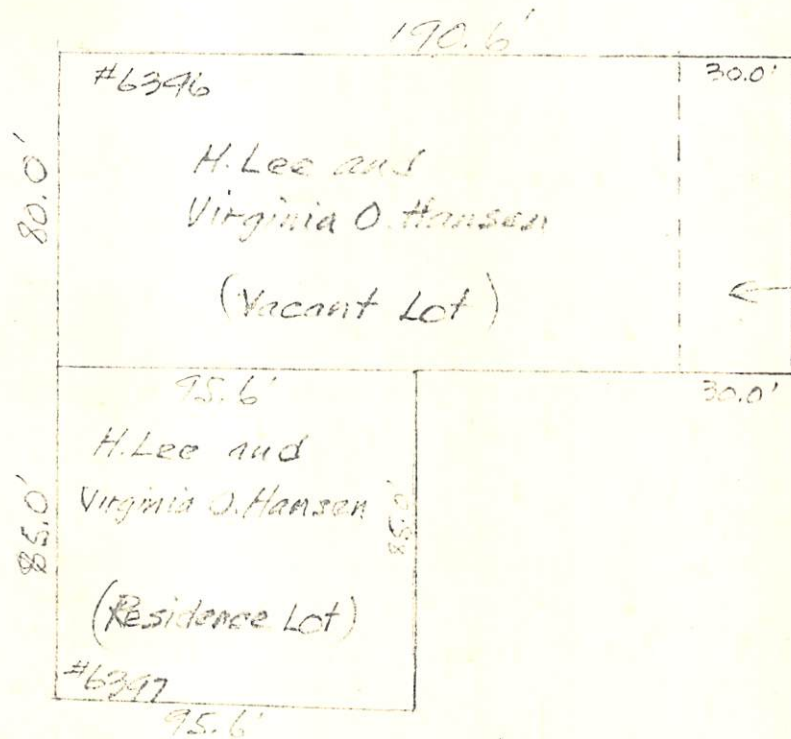 190.6'
#6396
30.0'
80.0'
H. Lee and
Virginia O. Hansen
(Vacant Lot)
95.6'
30.0'
H. Lee and
Virginia O. Hansen
85.0'
85.0'
(Residence Lot)
#6397
95.6'